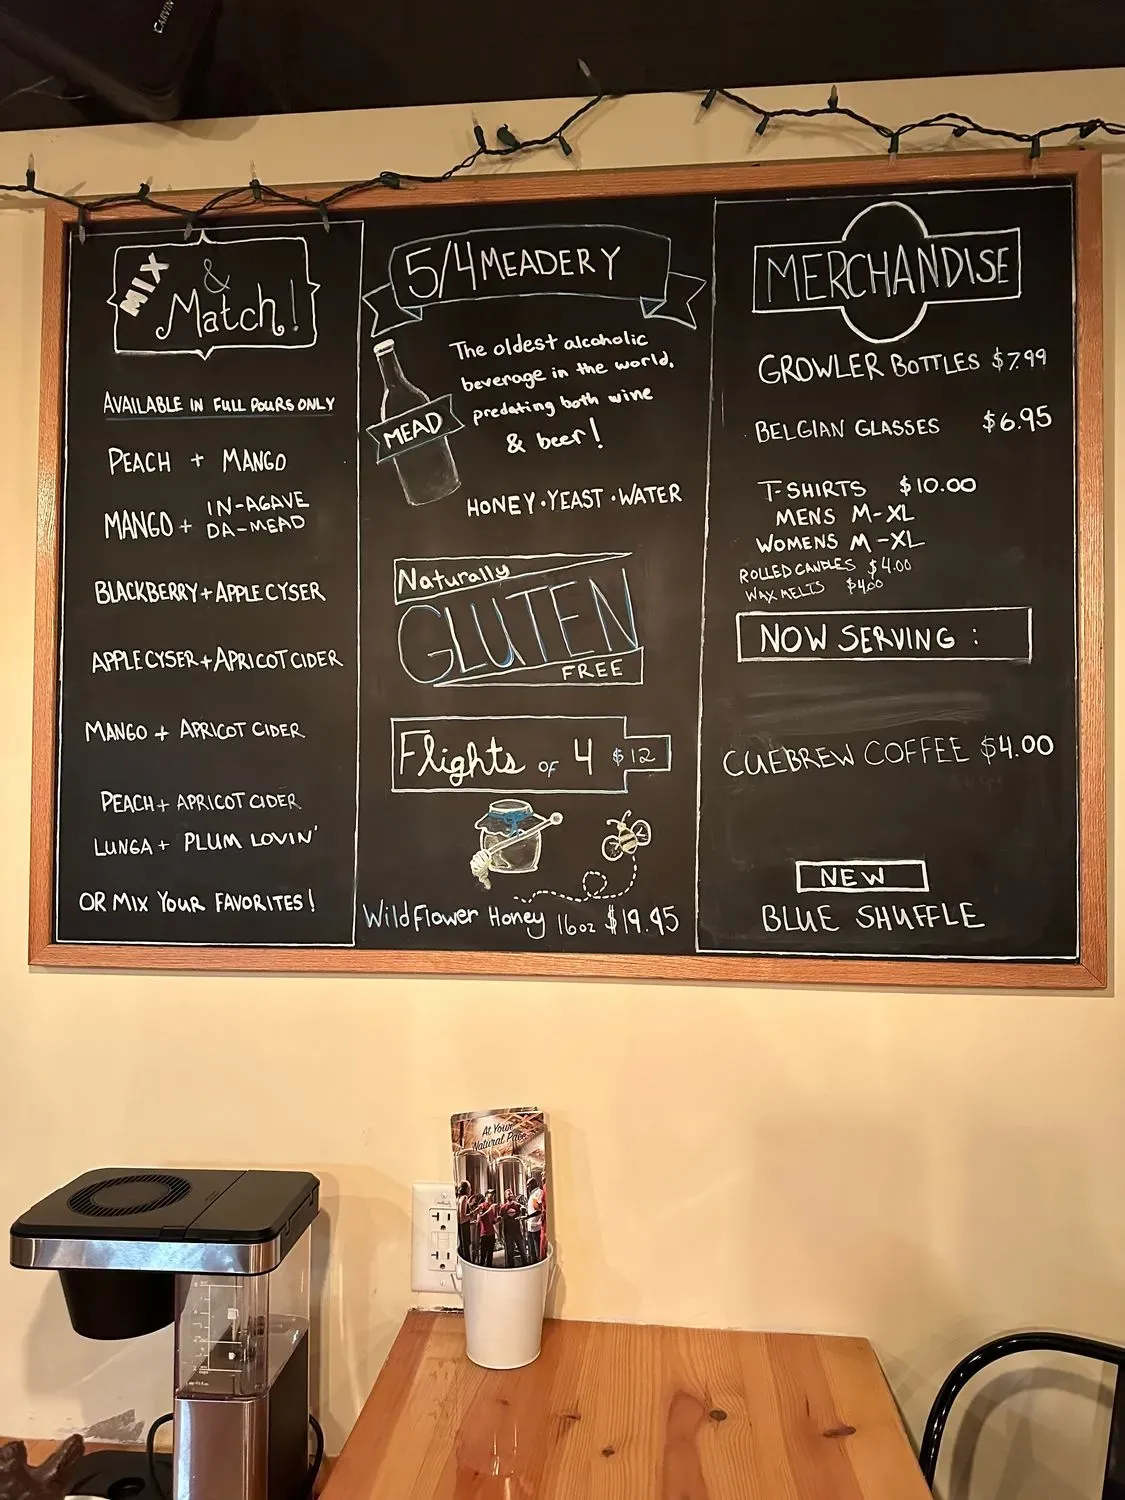 CARVIN
MIX
&
Match!
AVAILABLE IN FULL POURS ONLY
PEACH + MANGO
MANGO + IN-AGAVE
DA-MEAD
BLACKBERRY + APPLE CYSER
APPLE CYSER + APRICOT CIDER
MANGO + APRICOT CIDER
PEACH + APRICOT CIDER
LUNGA + PLUM LOVIN'
OR MIX YOUR FAVORITES!
5/4 MEADERY
The oldest alcoholic
beverage in the world,
predating both wine
& beer!
MEAD
HONEY · YEAST · WATER
Naturally
GLUTEN
FREE
Flights OF 4 $12
WildFlower Honey 16oz $19.95
MERCHANDISE
GROWLER BOTTLES $7.99
BELGIAN GLASSES $6.95
T-SHIRTS $10.00
MENS M-XL
WOMENS M-XL
ROLLED CANDLES $4.00
WAX MELTS $4.00
NOW SERVING :
CUEBREW COFFEE $4.00
NEW
BLUE SHUFFLE
At Your
Natural Pace